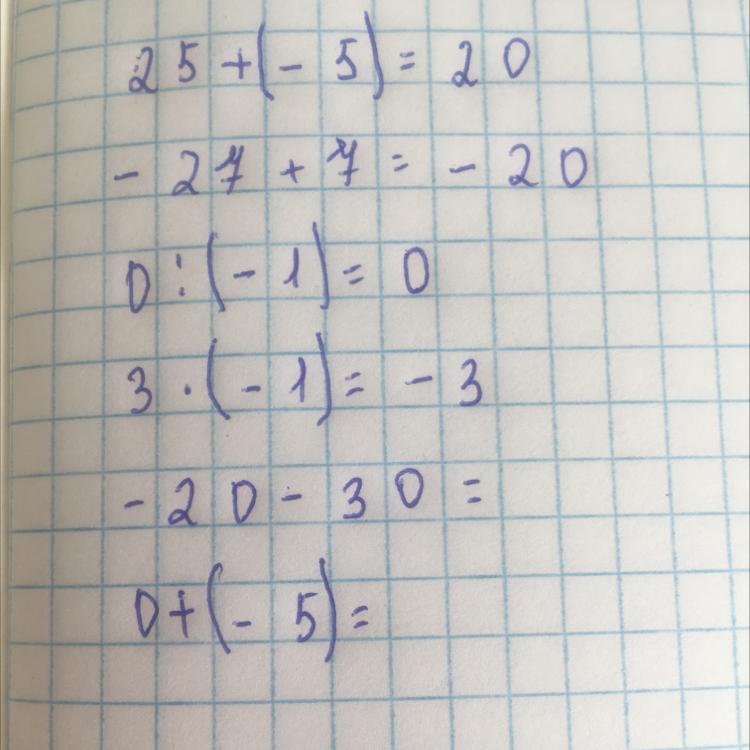 25+(-5)=20
-27+7=-20
0:(-1)=0
3·(-1)=-3
-20-30=
0+(-5)=